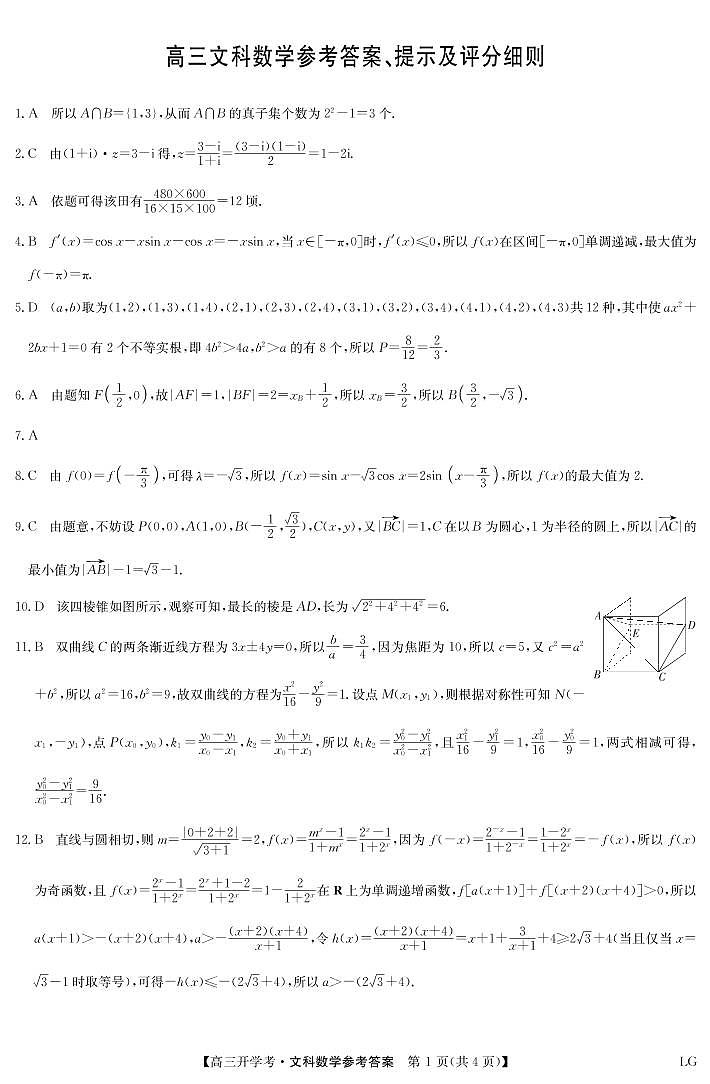 高三文科数学参考答案、提示及评分细则
1. A 所以 A∩B={1,3},从而 A∩B 的真子集个数为 2²-1=3 个.
2. C 由(1+i)·z=3-i 得,z=\frac{3-i}{1+i}=\frac{(3-i)(1-i)}{2}=1-2i.
3. A 依题可得该田有\frac{480×600}{16×15×100}=12 顷.
4. B f′(x)=cos x-xsin x-cos x=-xsin x,当 x∈[-π,0]时,f′(x)≤0,所以 f(x)在区间[-π,0]单调递减,最大值为
f(-π)=π.
5. D (a,b)取为(1,2),(1,3),(1,4),(2,1),(2,3),(2,4),(3,1),(3,2),(3,4),(4,1),(4,2),(4,3)共 12 种,其中使 ax²+
2bx+1=0 有 2 个不等实根,即 4b²>4a,b²>a 的有 8 个,所以 P=\frac{8}{12}=\frac{2}{3}.
6. A 由题知 F(\frac{1}{2},0),故|AF|=1,|BF|=2=x_B+\frac{1}{2},所以 x_B=\frac{3}{2},所以 B(\frac{3}{2},-\sqrt{3}).
7. A
8. C 由 f(0)=f(-\frac{π}{3}),可得 λ=-\sqrt{3},所以 f(x)=sin x-\sqrt{3}cos x=2sin (x-\frac{π}{3}),所以 f(x)的最大值为 2.
9. C 由题意,不妨设 P(0,0),A(1,0),B(-\frac{1}{2},\frac{\sqrt{3}}{2}),C(x,y),又|\overrightarrow{BC}|=1,C 在以 B 为圆心,1 为半径的圆上,所以|\overrightarrow{AC}|的
最小值为|\overrightarrow{AB}|-1=\sqrt{3}-1.
10. D 该四棱锥如图所示,观察可知,最长的棱是 AD,长为\sqrt{2²+4²+4²}=6.
A
D
E
B
C
11. B 双曲线 C 的两条渐近线方程为 3x±4y=0,所以\frac{b}{a}=\frac{3}{4},因为焦距为 10,所以 c=5,又 c²=a²
+b²,所以 a²=16,b²=9,故双曲线的方程为\frac{x²}{16}-\frac{y²}{9}=1. 设点 M(x₁,y₁),则根据对称性可知 N(-
x₁,-y₁),点 P(x₀,y₀),k₁=\frac{y₀-y₁}{x₀-x₁},k₂=\frac{y₀+y₁}{x₀+x₁},所以 k₁k₂=\frac{y₀²-y₁²}{x₀²-x₁²},且\frac{x₁²}{16}-\frac{y₁²}{9}=1,\frac{x₀²}{16}-\frac{y₀²}{9}=1,两式相减可得,
\frac{y₀²-y₁²}{x₀²-x₁²}=\frac{9}{16}.
12. B 直线与圆相切,则 m=\frac{|0+2+2|}{\sqrt{3+1}}=2,f(x)=\frac{m^x-1}{1+m^x}=\frac{2^x-1}{1+2^x},因为 f(-x)=\frac{2^{-x}-1}{1+2^{-x}}=\frac{1-2^x}{1+2^x}=-f(x),所以 f(x)
为奇函数,且 f(x)=\frac{2^x-1}{1+2^x}=\frac{2^x+1-2}{1+2^x}=1-\frac{2}{1+2^x}在 R 上为单调递增函数,f[a(x+1)]+f[(x+2)(x+4)]>0,所以
a(x+1)>-(x+2)(x+4),a>-\frac{(x+2)(x+4)}{x+1},令 h(x)=\frac{(x+2)(x+4)}{x+1}=x+1+\frac{3}{x+1}+4≥2\sqrt{3}+4(当且仅当 x=
\sqrt{3}-1 时取等号),可得-h(x)≤-(2\sqrt{3}+4),所以 a>-(2\sqrt{3}+4).
【高三开学考·文科数学参考答案 第 1 页(共 4 页)】
LG